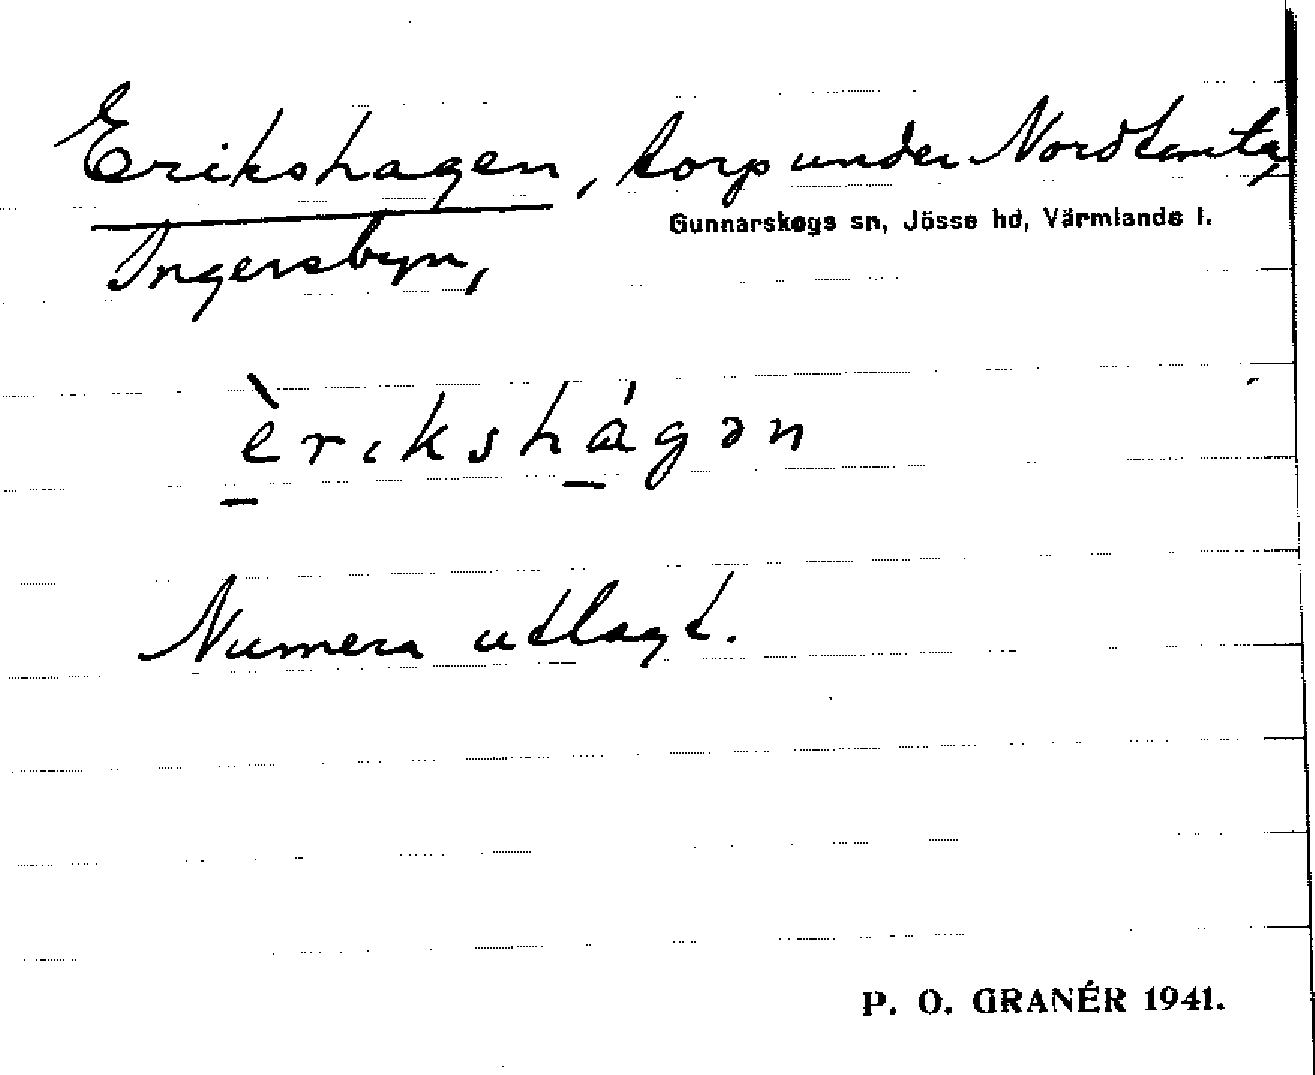 Erikshagen, torp under Nordtomta
Gunnarskogs sn, Jösse hd, Värmlands l.
Ingersbyn,
èrikshágən
Numera utlagt.
P. O. GRANÉR 1941.